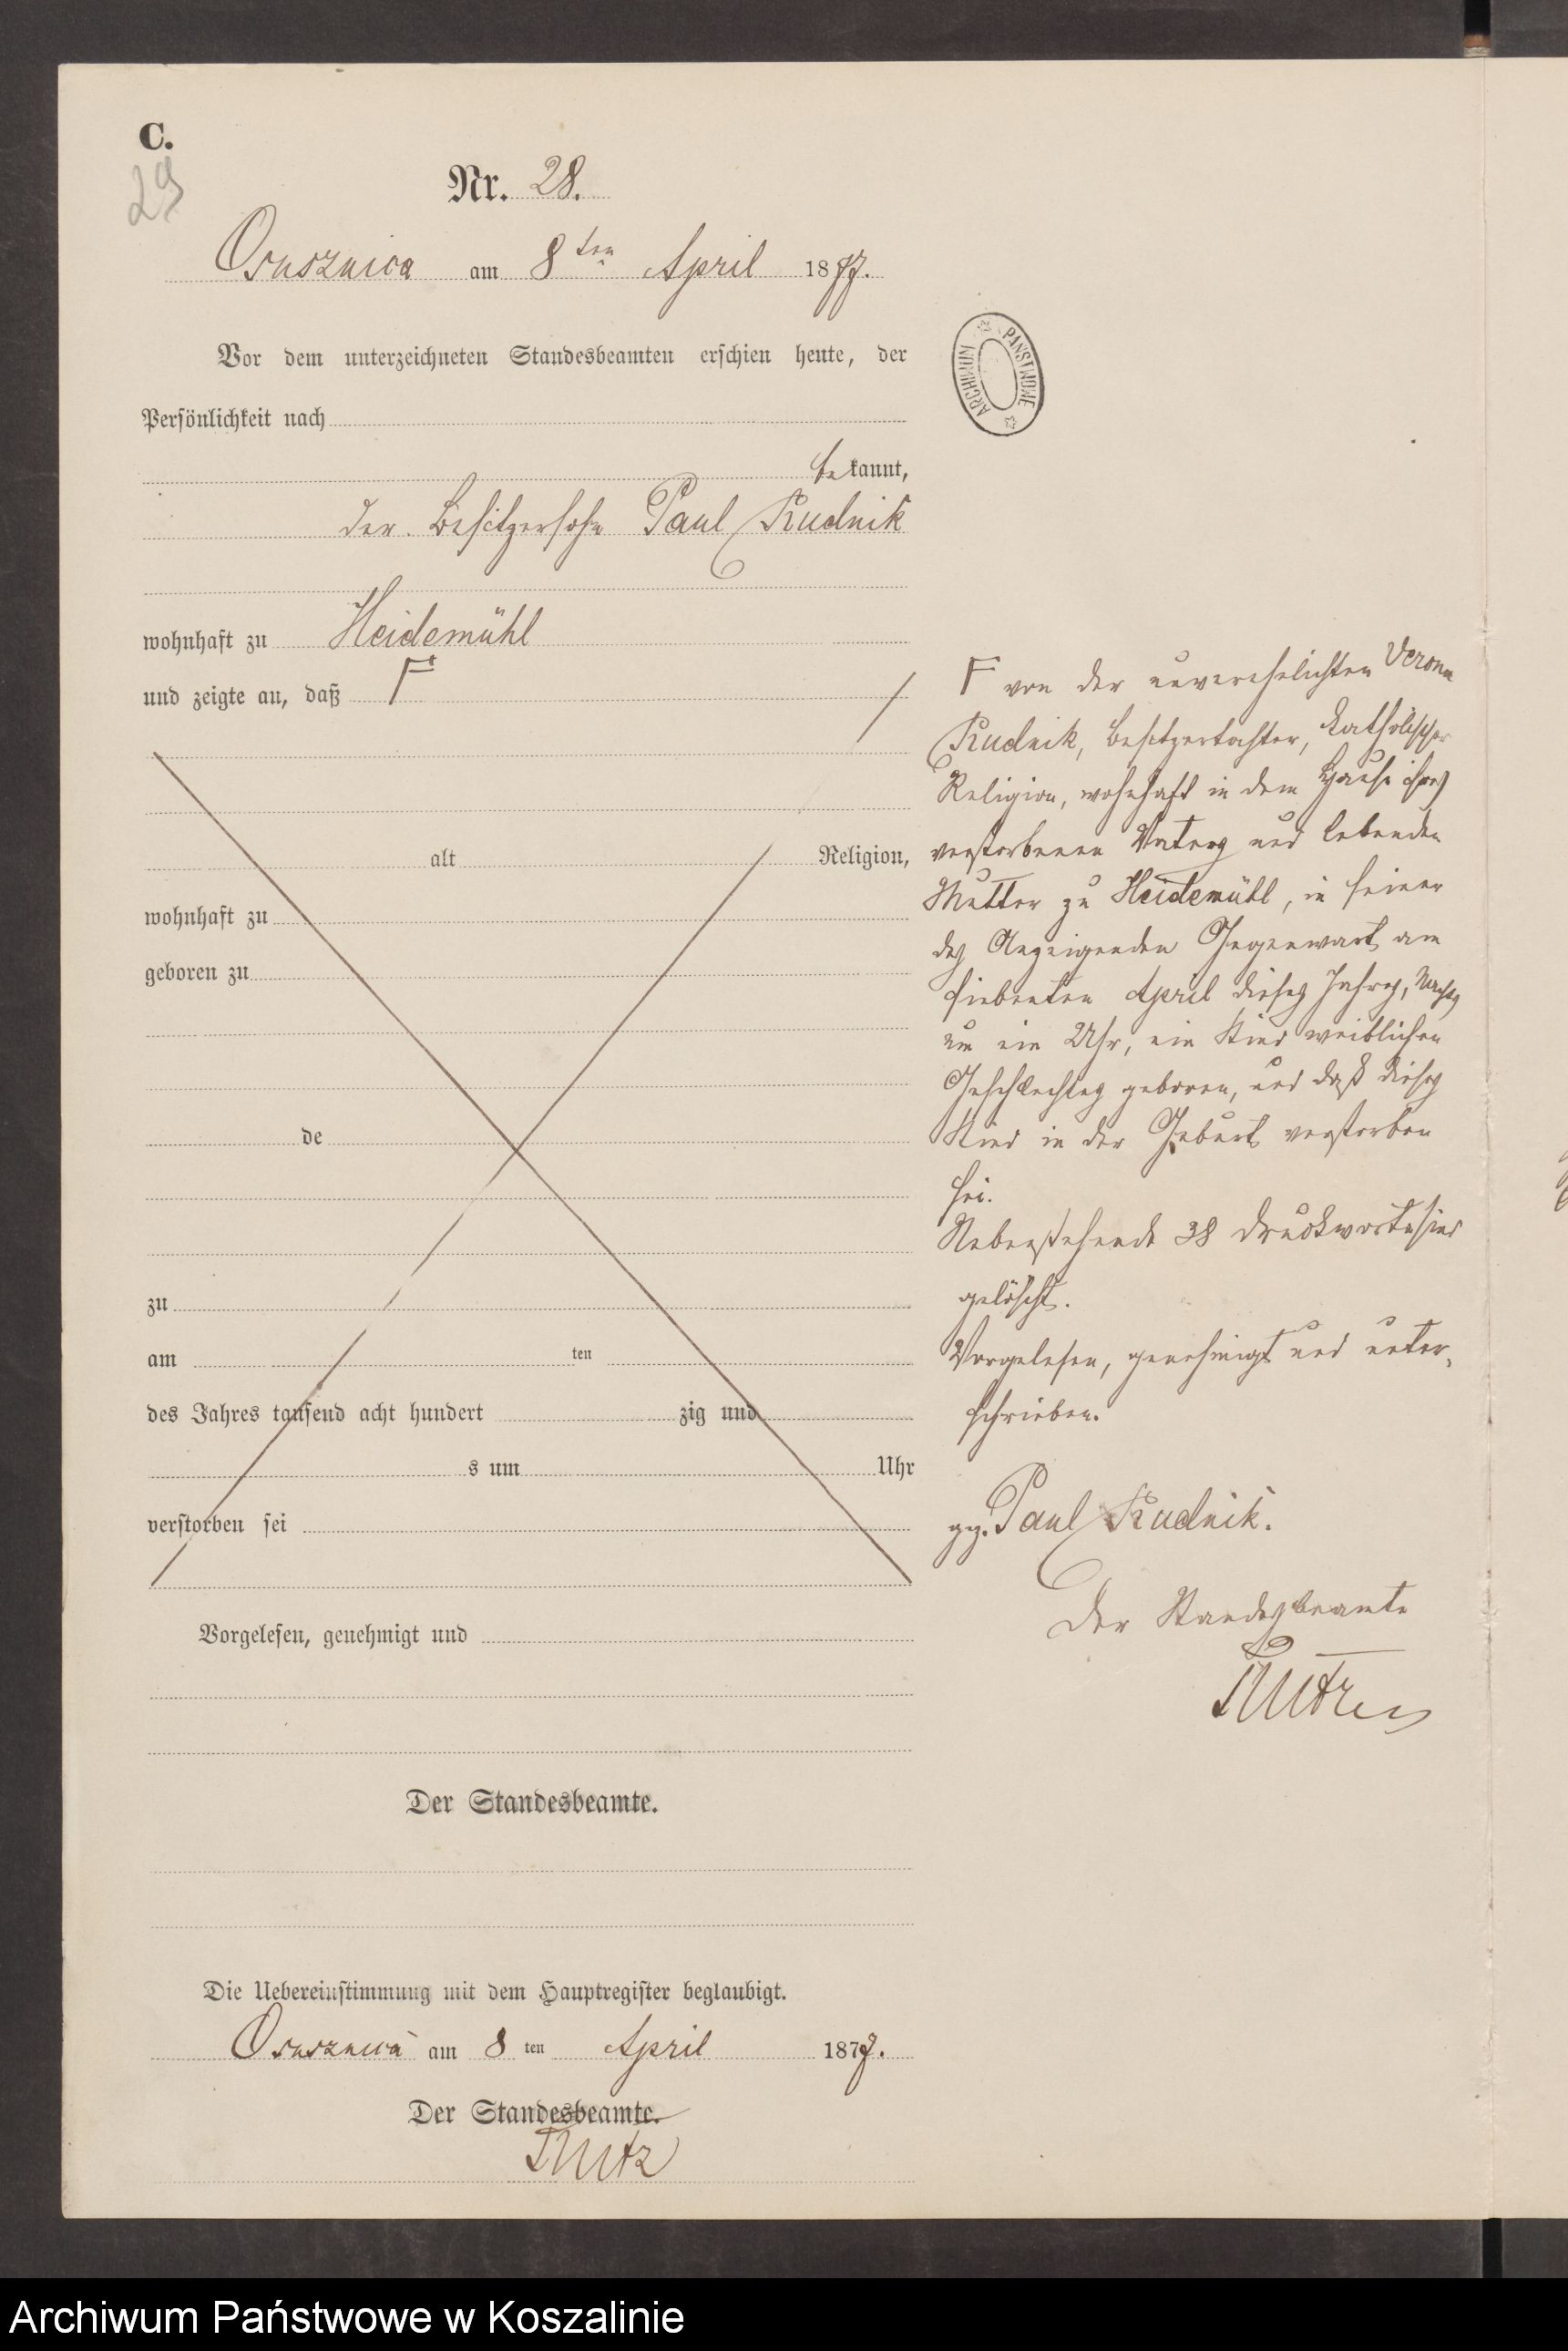 C.
29
Nr. 28.
Osusznica am 8ten April 1877.
Vor dem unterzeichneten Standesbeamten erschien heute, der
Persönlichkeit nach
bekannt,
der Besitzersohn Paul Rudnik
wohnhaft zu Heidemühl
und zeigte an, daß F
alt Religion,
wohnhaft zu
geboren zu
de
zu
am ten
des Jahres tausend acht hundert zig und
s um Uhr
verstorben sei
Vorgelesen, genehmigt und
Der Standesbeamte.
Die Uebereinstimmung mit dem Hauptregister beglaubigt.
Osusznica am 8 ten April 1877.
Der Standesbeamte.
ARCHIWUM PAŃSTWOWE
F von der unverehelichten Verona
Rudnik, Besitzertochter, katholischer
Religion, wohnhaft in dem Hause ihres
verstorbenen Vaters und lebenden
Mutter zu Heidemühl, in seiner
des Anzeigenden Gegenwart am
siebenten April dieses Jahres, Nachts
um ein Uhr, ein Kind weiblichen
Geschlechtes geboren, und daß dieses
Kind in der Geburt verstorben
sei.
Nebenstehende 38 Druckworte sind
gelöscht.
Vorgelesen, genehmigt und unter-
schrieben.
gz. Paul Rudnik.
Der Standesbeamte
Archiwum Państwowe w Koszalinie